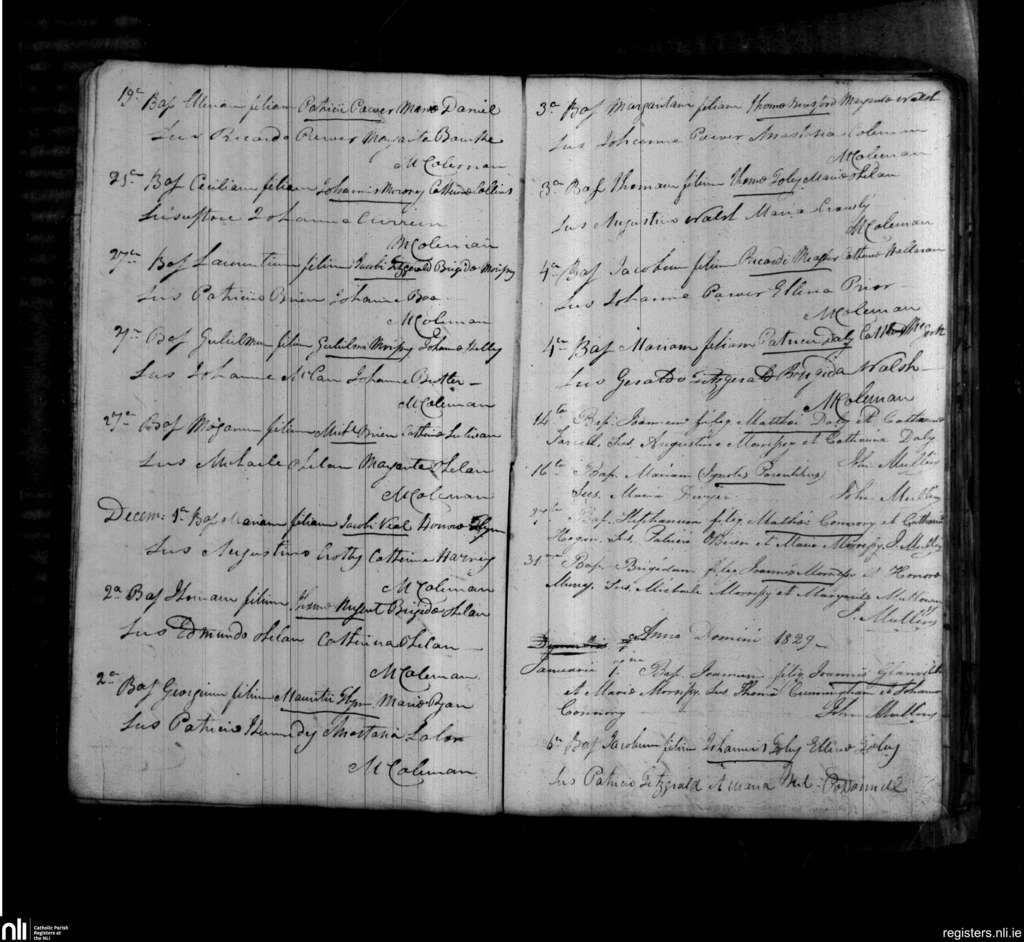 19a Bap Ellenam filiam Patricii Power Maria Daniel
Sus Ricardo Power Margarita Bourke
M Coleman
25a Bap Ceciliam filiam Johannis Morony Catherina Collins
Johanne Currin
M Coleman
27a Bap Laurentium filium Jacobi Brigida Morissy
Sus Patricio Brien Johanna
M Coleman
27a Bap Gulielmum filium Gulielmi Morissy Johana Kelly
Sus Johanne McCan Johanna Butler
M Coleman
27a Bap filium Brien Catherina
Sus Michaele Phelan Margarita Phelan
M Coleman
Decem: 1a Bap Mariam filiam Jacobi Veal Honora Flynn
Sus Augustino Crotty Catherina Harney
M Coleman
2a Bap Thomam filium Thoma Nugent Brigida Phelan
Sus Edmundo Phelan Catherina Phelan
M Coleman
2a Bap Georgium filium Mauritii Flyn Maria Ryan
Sus Patricio Kennedy Anastasia Lalor
M Coleman
3a Bap Margaritam filiam Thoma Margarita Walsh
Sus Johanne Power Anastasia Coleman
M Coleman
3a Bap Thomam filium Thoma Foley Maria Phelan
Sus Augustino Walsh Maria
M Coleman
4a Bap Jacobum filium Ricardi Meagher Catherina Hallaran
Sus Johanne Power Ellena Prior
M Coleman
4a Bap Mariam filiam Patricii Daly
Sus Geraldo Fitzgerald Brigida Walsh
M Coleman
14to Bap. Joannem Matthai Daly et Catharina
Farrell. Sus. Augustino Morrissy et Catharina Daly
John Mullins
16to Bap. Mariam (Ignotis Parentibus)
Sus. Maria Dwyer John Mullins
Bap. Stephanum Mathai Connory et Catharina
Hogan. Sus. Patricio OBrien et Maria Morrissy. J. Mullins
31 Bap. Brigidam Joannis Morrissy et Honora
Sus. Michaele Morrissy et Margarita
J. Mullins
Anno Domini 1829
Januarii 1 Bap. Joannem Joannis
et Maria Morrissy Sus Thoma Cunningham et Johana
Connory John Mullins
6a Bap Jacobum filium Johannis Foley Ellina Foley
Sus Patricio Fitzgerald Maria
nli
Catholic Parish
Registers at
the NLI
registers.nli.ie